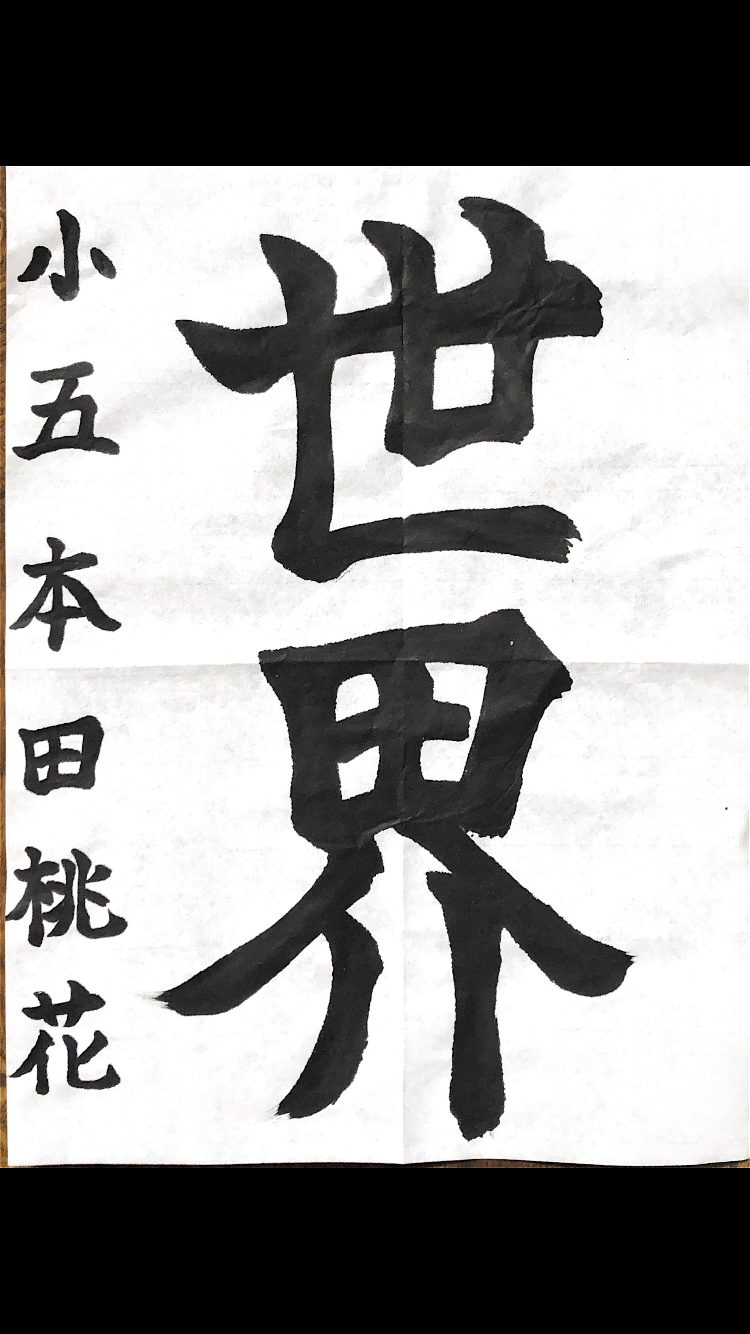 世界
小五本田桃花